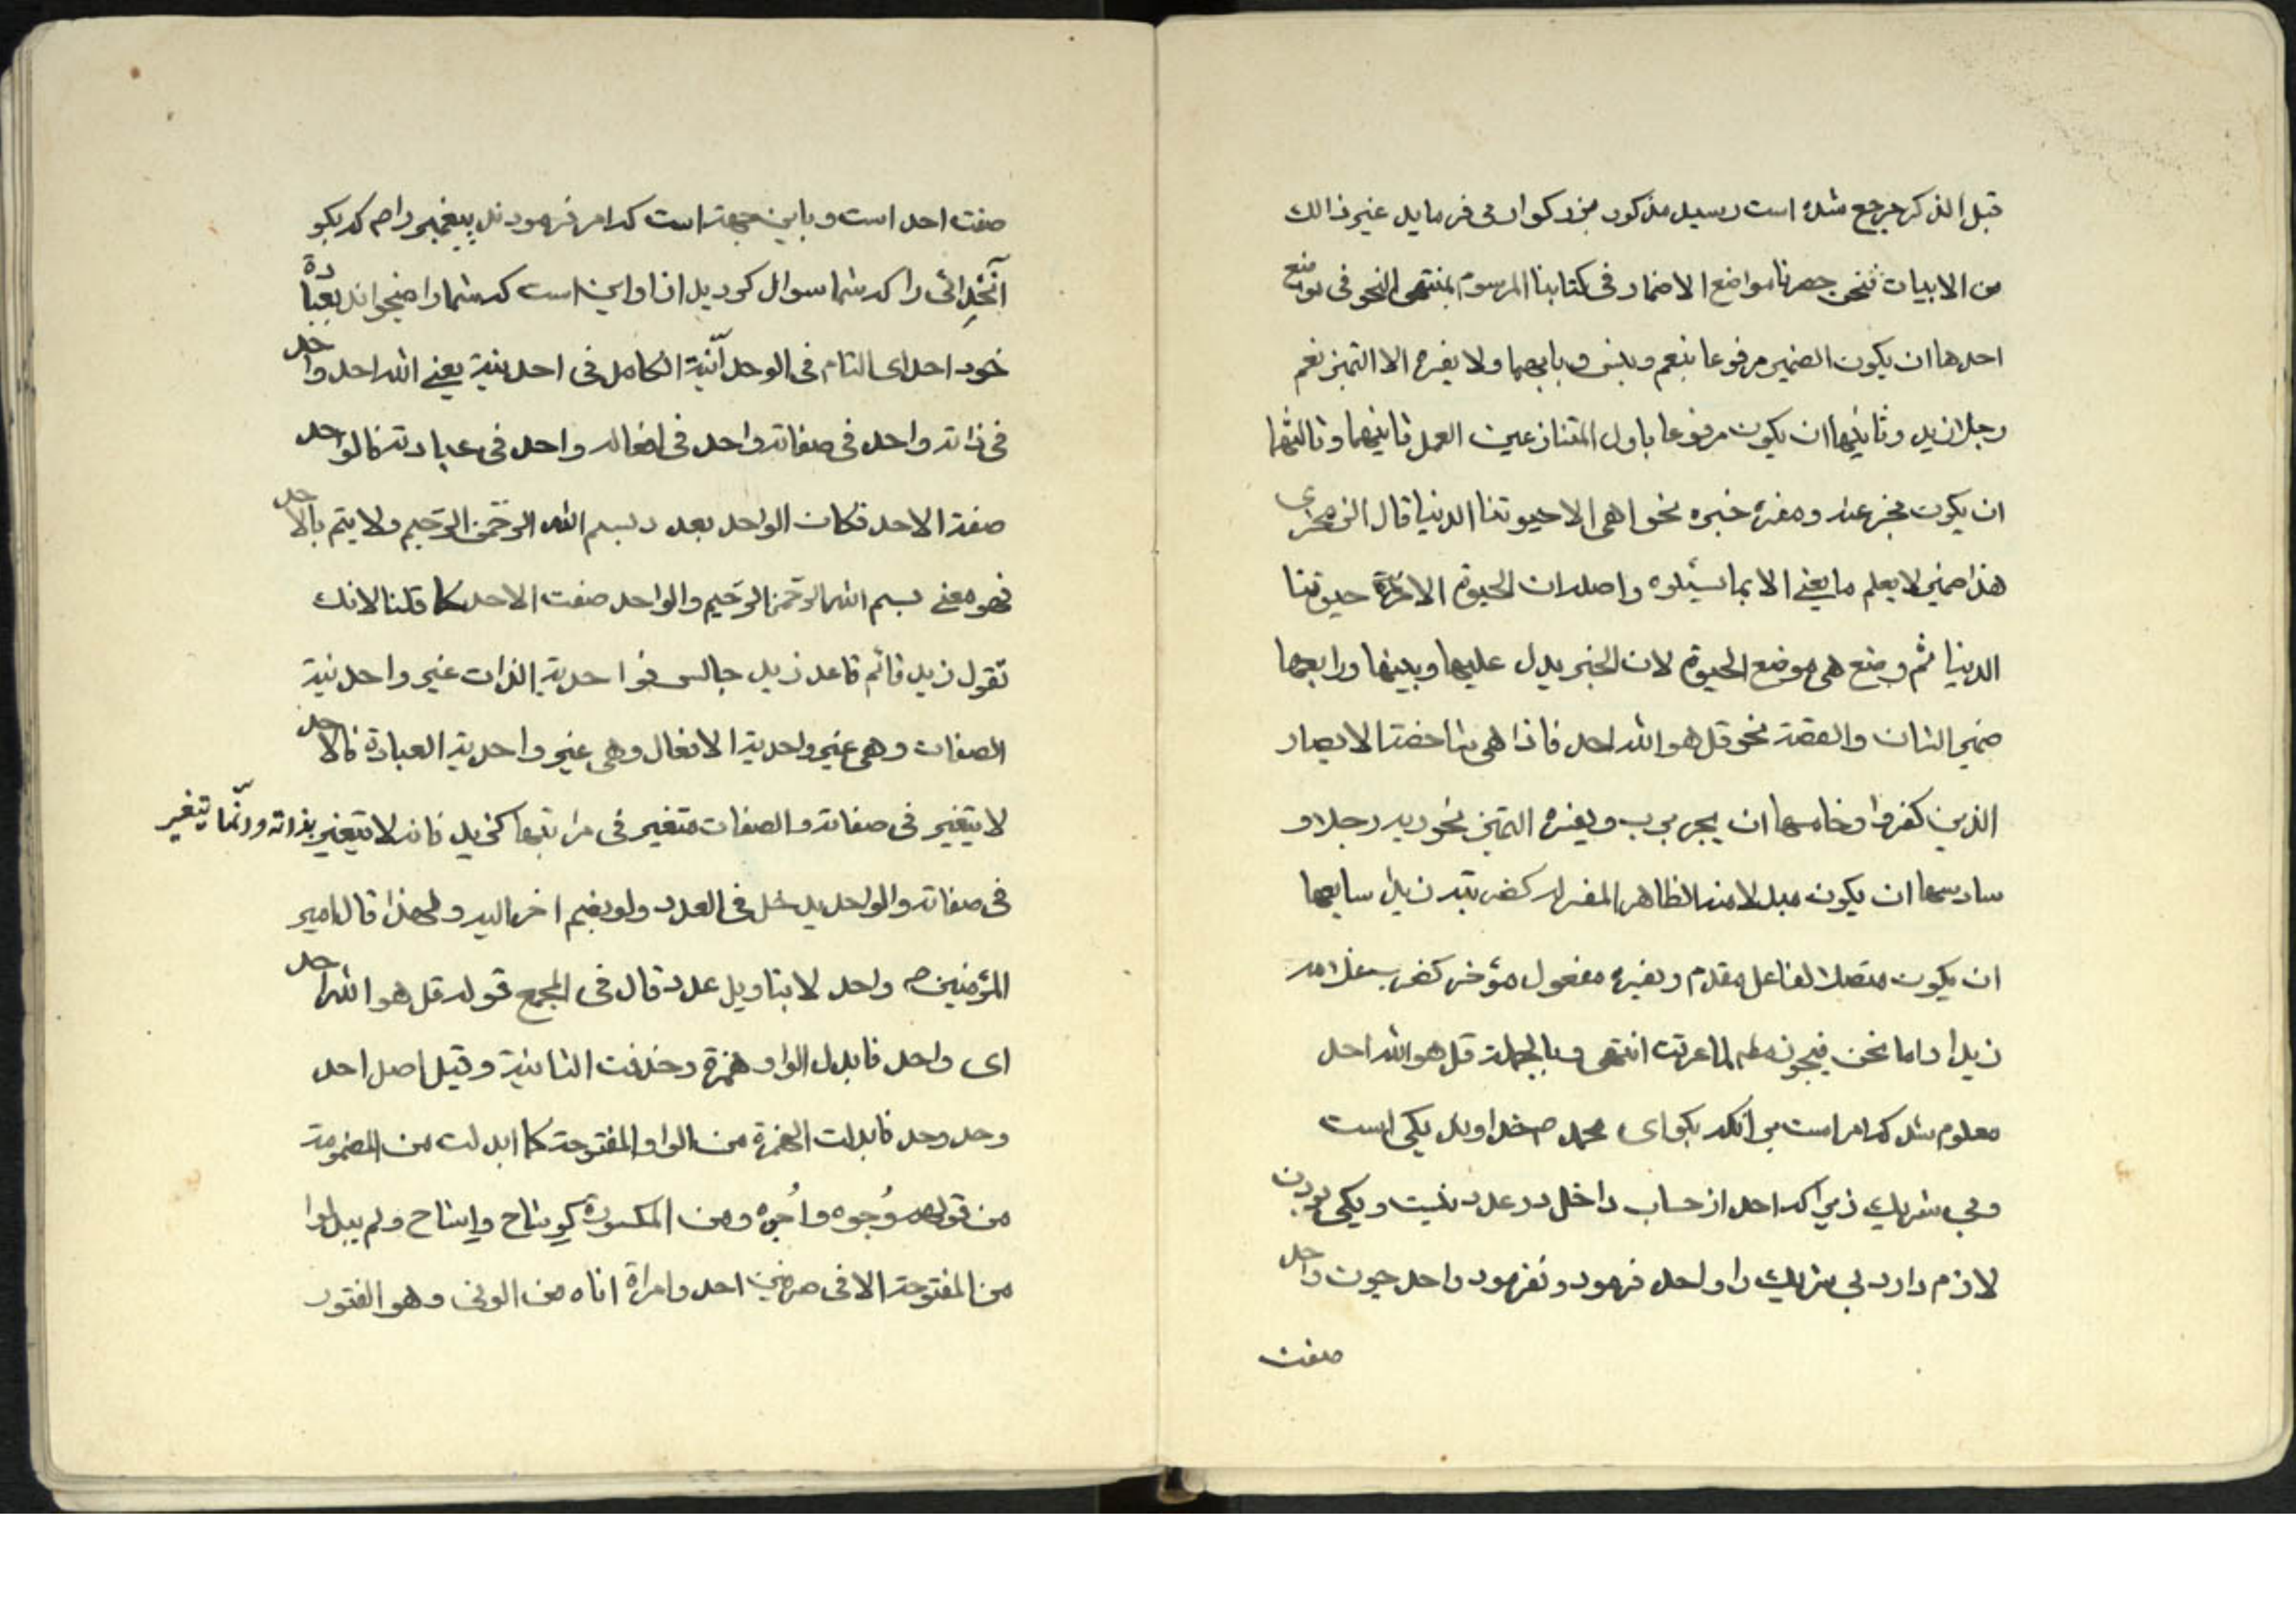 قبل الذكر مرجع شده است و سید مذکور بزرکوار می فرماید غیر ذالك
من الابیات فنحن حصرنا مواضع الاضمار فی کتابنا المرسوم بمنتهی النحو فی مواضع
احدها ان یکون الضمیر مرفوعا بنعم و بئس و بابهما ولا یفسره الا التمیز نعم
رجلا زید و ثانیها ان یکون مرفوعا باول المتنازعین العمل ثانیهما و ثالثها
ان یکون مخبر عنه و مفسره خبره نحو ما هی الا حیوتنا الدنیا قال الزمخشری
هذا ضمیر لا یعلم ما یعنی الا بما یتلوه و اصله ان الحیوة الا حیوتنا
الدنیا ثم وضع هی موضع الحیوة لان الخبر یدل علیها و یبینها و رابعها
ضمیر الشان و القصة نحو قل هو الله احد فاذا هی شاخصة الابصار
الذین کفروا و خامسها ان یجر برب و یفسره التمیز نحو ربه رجلا و
سادسها ان یکون مبدلا منه الظاهر المفسر له کضربته زیدا سابعها
ان یکون متصلا لفاعل مقدم و یفسره مفعول مؤخر کضرب غلامه
زیدا و اما نحن فیجوز لما عرفت انتهی و بالجملة قل هو الله احد
معلوم شد که امر است بر آنکه بکو ای محمد ص خداوند یکی است
و بی شریك زیرا که احد از حساب داخل در عدد نیست و یکی بودن
لازم دارد بی شریك را و احد فرمود و نفرمود واحد چون واحد
صفت
صفت احد است و باین جهت است که امر فرمودند پیغمبر را ص که بکو
آنخدائی را که شما سوال کردید از او این است که شما را میخواند بعبادة
خود احد ای التام فی الوحدانیة الکامل فی احدیته یعنی الله احد واحد
فی ذاته واحد فی صفاته واحد فی افعاله واحد فی عبادته فالواحد
صفة الاحد فکان الواحد بعدد بسم الله الرحمن الرحیم ولا یتم بالاحد
فهو معنی بسم الله الرحمن الرحیم والواحد صفت الاحد کما قلنا لانك
تقول زید قائم قاعد زید جالس فواحدیة الذات غیر واحدیة
الصفات و هی غیر واحدیة الافعال و هی غیر واحدیة العبادة فالاحد
لا یتغیر فی صفاته و الصفات متغیر فی مراتبها کزید فانه لا یتغیر بذاته و انما یتغیر
فی صفاته والواحد یدخل فی العدد ولو بضم اخر الیه و لهذا قال امیر
المؤمنین ع واحد لا بتاویل عدد قال فی المجمع قوله قل هو الله احد
ای واحد فابدل الواو همزة و حذفت الثانیة و قیل اصل احد
وحد وحد فابدلت الهمزة من الواو المفتوحة کما ابدلت من المضمومة
من قولهم وُجوه و اُجوه و من المکسورة کوِشاح و اِشاح ولم یبدلوا
من المفتوحة الا فی حرفین احد و امراة اناة من الونی و هو الفتور